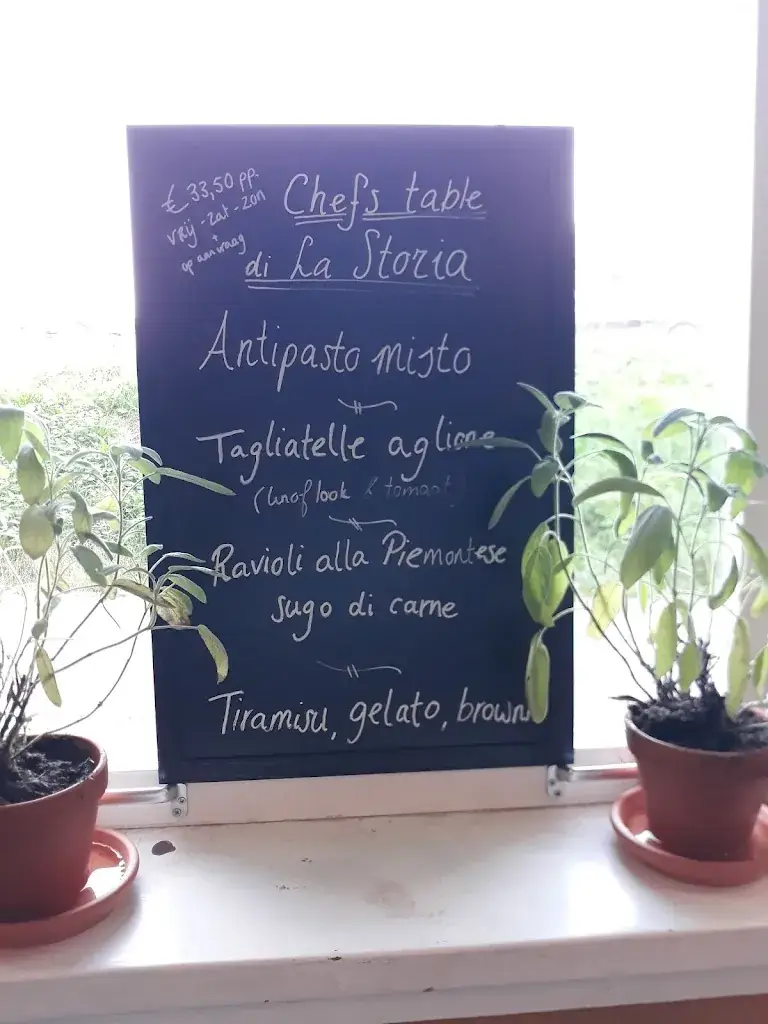 € 33,50 pp.
vrij - zat - zon
+
op aanvraag
Chefs table
di La Storia
Antipasto misto
Tagliatelle aglione
(knoflook & tomaat)
Ravioli alla Piemontese
sugo di carne
Tiramisu, gelato,